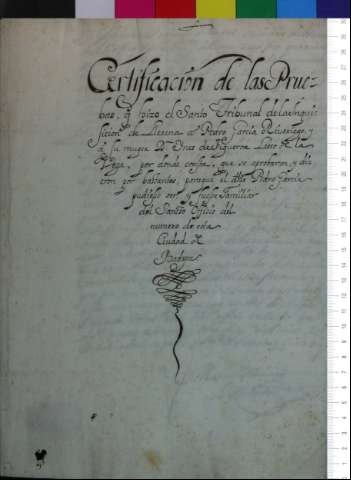 Certificación de las Prue-
bas, q hizo el Santo Tribunal de la Inqui
sicion de Llerena a Pedro Garcia y
a su muger Dª Ines de Figueroa de la
Vega, por donde consta, que se aprobaron, y die
ron por bastantes, paraque el dho Pedro Garcia
pudiese ser, y fuese Familiar
del Santo Oficio del
numero de esta
Ciudad de
Badajoz